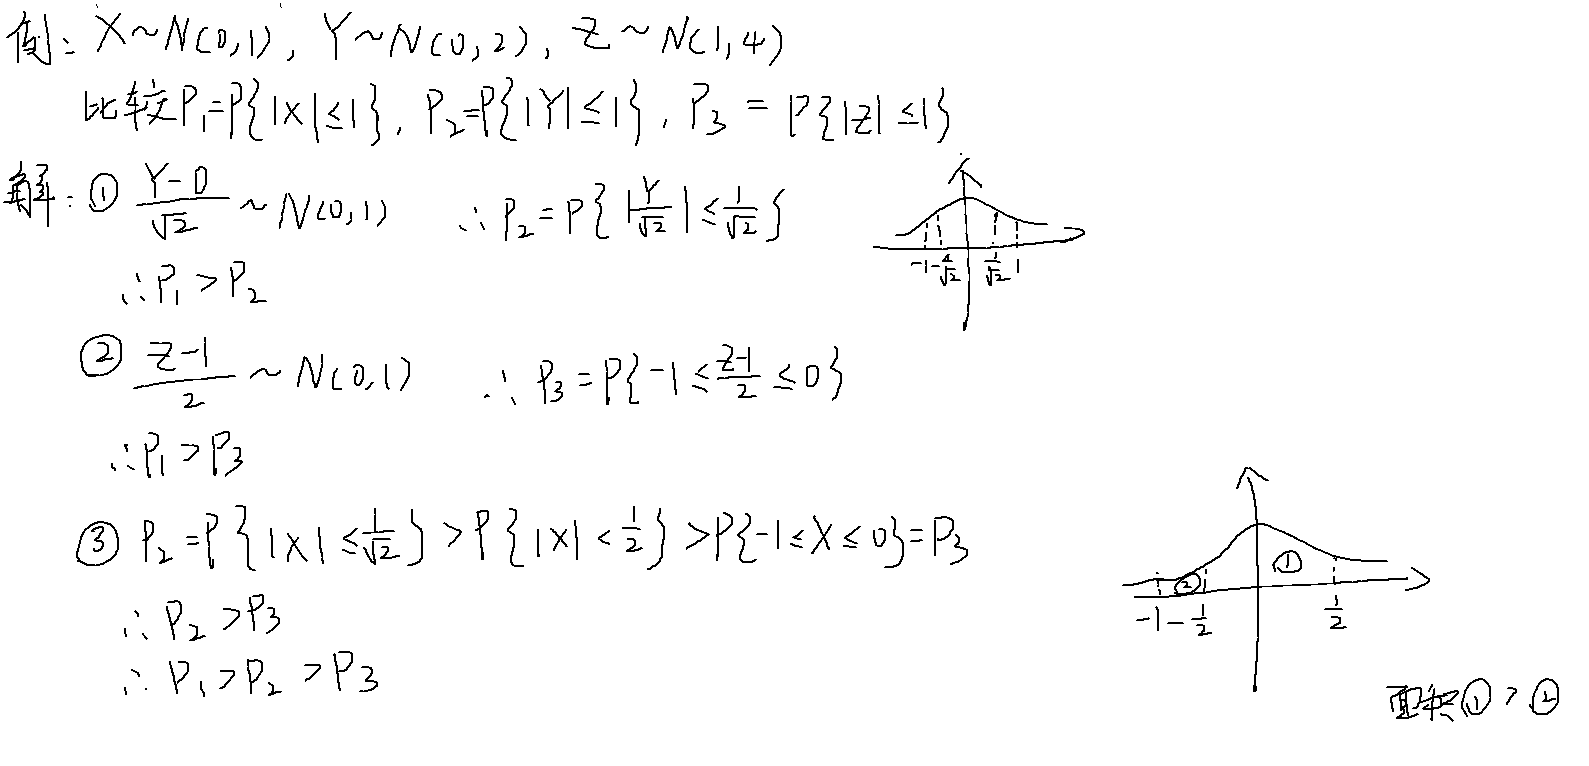 例: X~N(0,1), Y~N(0,2), Z~N(1,4)
比较P₁=P{|X|≤1}, P₂=P{|Y|≤1}, P₃=P{|Z|≤1}
解: ① (Y-0)/√2 ~ N(0,1) ∴ P₂=P{|Y/√2|≤1/√2}
-1 -1/√2 1/√2 1
∴P₁>P₂
② (Z-1)/2 ~ N(0,1) ∴ P₃=P{-1≤(Z-1)/2≤0}
∴P₁>P₃
③ P₂=P{|X|≤1/√2}>P{|X|<1/2}>P{-1≤X≤0}=P₃
② ①
-1 -1/2 1/2
∴ P₂>P₃
∴ P₁>P₂>P₃
面积①>②